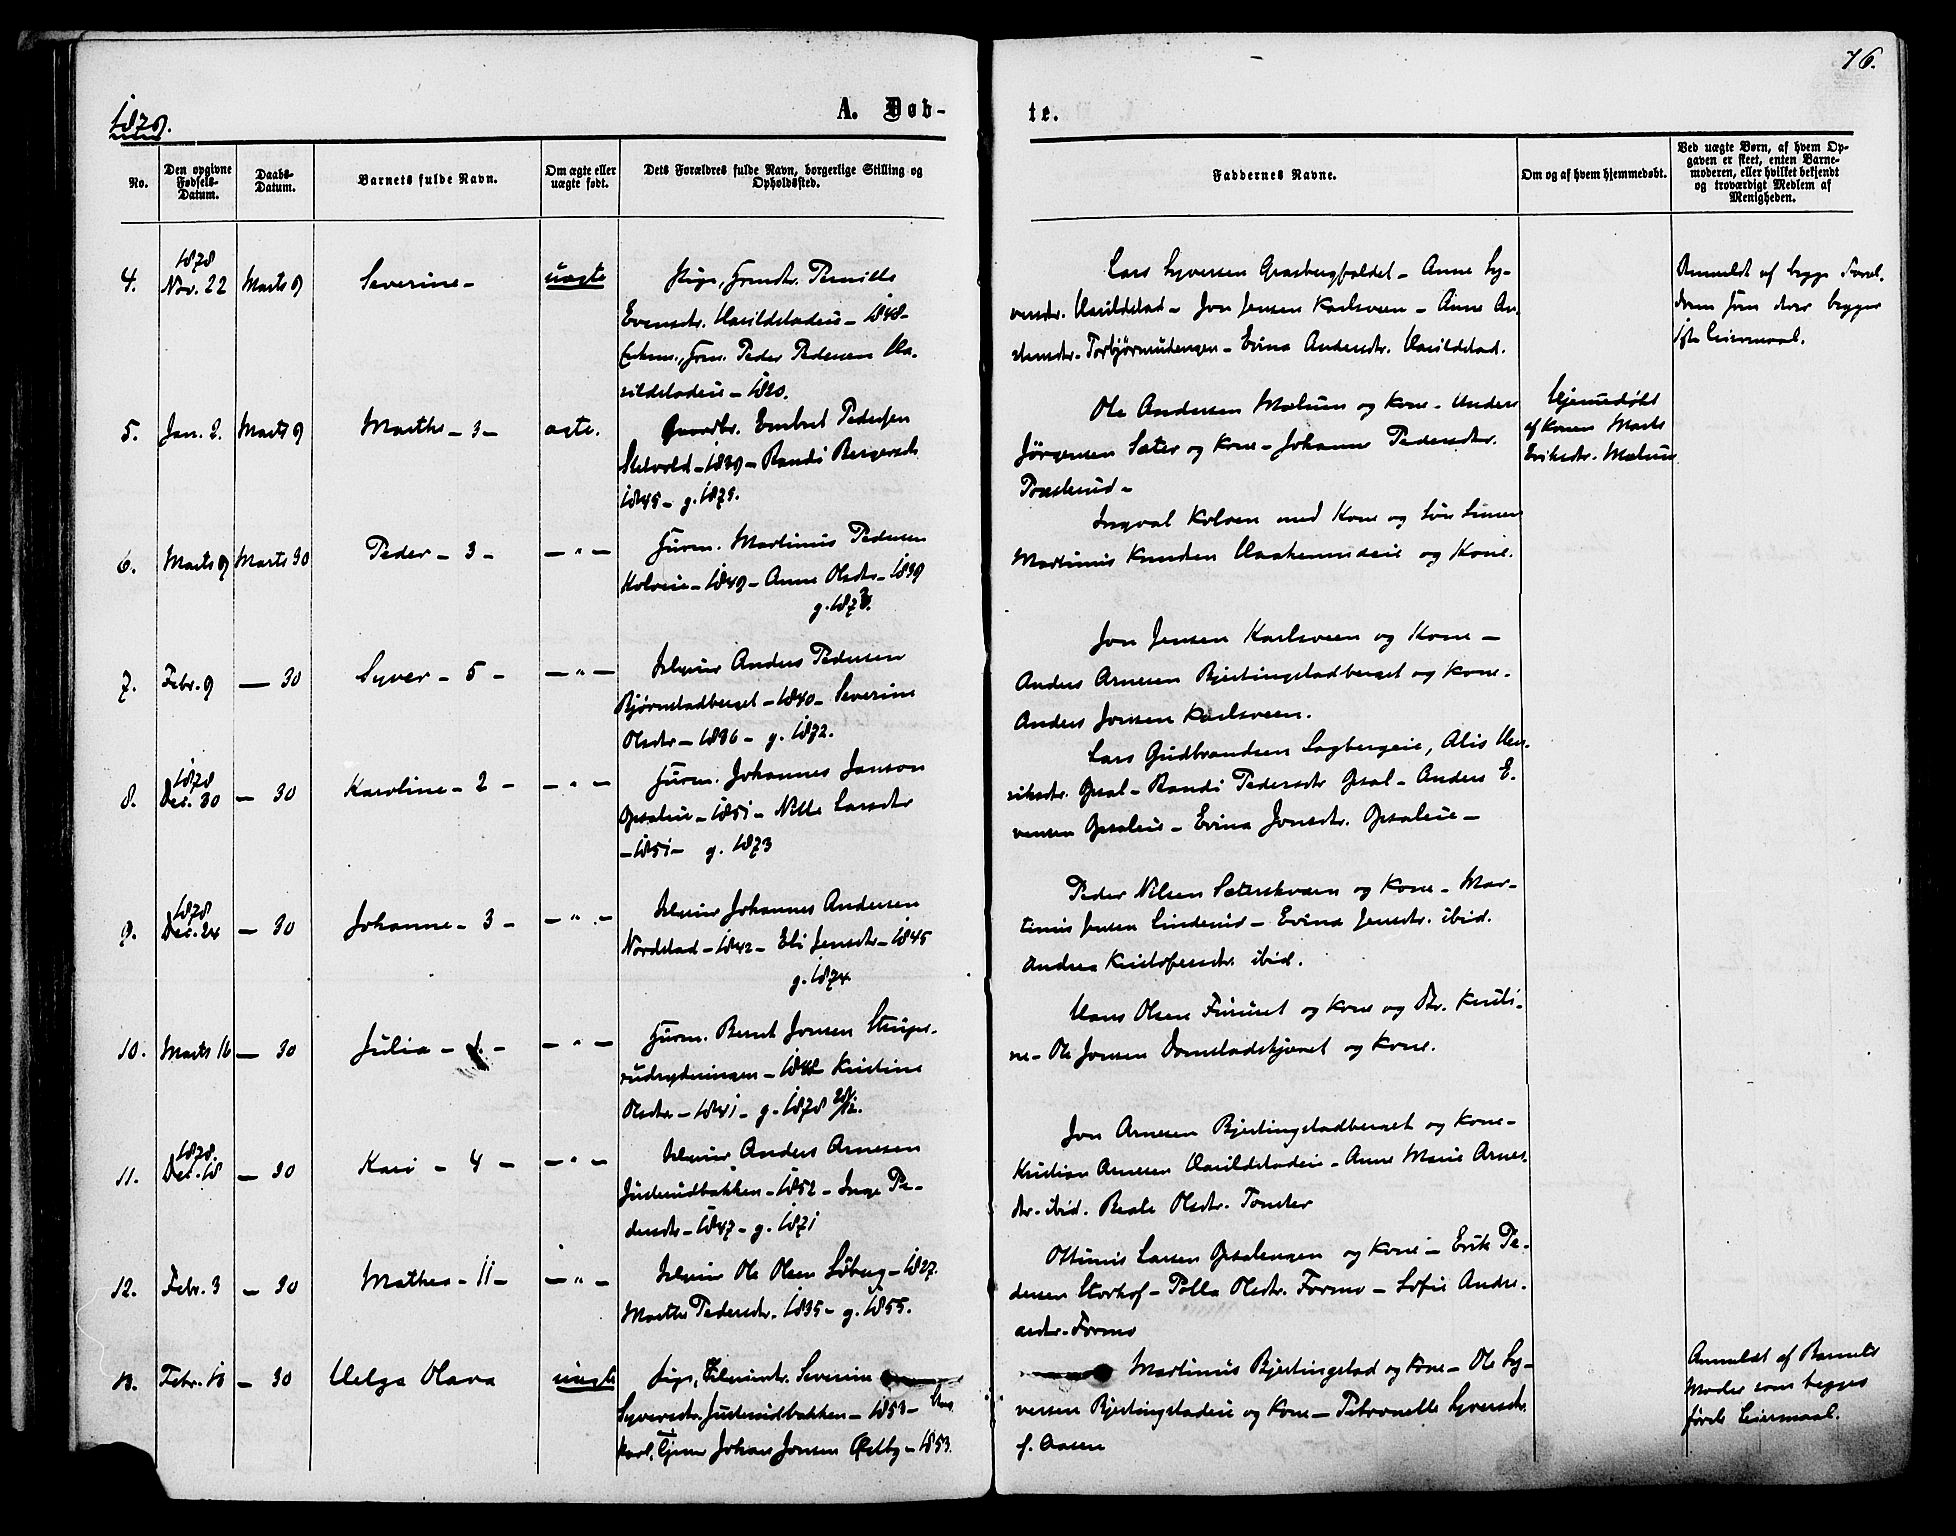 76.
1879.
A. Døb-
te.
No.
Den opgivne Fødsels-Datum.
Daabs-Datum.
Barnets fulde Navn.
Om ægte eller uægte født.
Dets Forældres fulde Navn, borgerlige Stilling og Opholdssted.
Faddernes Navne.
Om og af hvem hjemmedøbt.
Ved uægte Børn, af hvem Opgaven er skeet, enten Barnemoderen, eller hvilket bekjendt og troværdigt Medlem af Menigheden.
4.
1878
Nov. 22
Marts 9
Severine -
uægte
Pige, Pernille
Evensdtr. - 1848 -
Peder Pedersen Ha-
rildstadeie - 1820.
Lars Syversen - Anne Sy-
versdtr. Harildstad - Jon Jensen Karlsveen - Anne
- Evina Andersdtr. Harildstad.
Anmeldt af begge Foræl-
begges
Leiermaal.
5.
Jan. 2.
Marts 9
Marthe - 3 -
ægte.
Gaardbr. Embret Pedersen
- 1839 - Randi Bergersdtr
1845 - g. 1875.
Ole Andersen Mælum og Kone - Anders
Jørgensen Sæter og Kone - Johanne Pedersdtr.
Hjemmedøbt
af Konen Marte
Eriksdtr. Mælum
6.
Marts 9
Marts 30
Peder - 3 -
- " -
Husm. Martinus Pedersen
Kolveie - 1849 - Anne Olsdtr - 1839
Ingval Kolven med Kone og Søn Simen
Martinus Knudsen og Kone.
7.
Febr. 9
- 30
Syver - 5 -
- " -
Inderst Anders Pedersen
Bjørnstadberget - 1840 - Severine
Olsdtr - 1836 - g. 1872.
Jon Jensen Karlsveen og Kone -
Anders Arnesen Bjertingstadberget og Kone -
Anders Jonsen Karlsveen.
8.
1878
Dec. 30
- 30
Karoline - 2 -
- " -
Husm. Johannes Janson
Opsaleie - 1851 - Nille Larsdtr
- 1851 - g. 1873
Lars Gudbrandsen Sagbergeie, Alis Hen-
riksdtr. Opsal - Randi Pedersdtr Opsal - Anders E-
vensen Opsaleie - Evina Jonsdtr. Opsaleie -
9.
1878
Dec. 24
- 30
Johanne - 3 -
- " -
Johannes Andersen
Nordstad - 1842 - Eli Jensdtr - 1845
g. 1874
Peder Nilsen Sæterskveen og Kone - Mar-
tinus Jensen Linderud - Evina Jensdtr. ibid.
Andrea Kristofersdtr ibid.
10.
Marts 16
- 30
Julia - 1 -
- " -
Husm. Bernt Jonsen
Kristine
Olsdtr - 1841 - g. 1878 28/12.
Hans Olsen Furuset og Kone og Dtr. Kristi-
ne - Ole Jonsen og Kone.
11.
1878
Dec. 18
- 30
Kari - 4 -
- " -
Anders Arnesen
Justerudbakken - 1852 - Inge Pe-
dersdtr - 1847 - g. 1871
Jon Arnesen Bjertingstadberget og Kone -
Kristian Arnesen Harildstadeie - Anne Marie Arnes-
dtr. ibid. Beate Olsdtr. Tomter
12.
Febr. 3
- 30
Mathea - 11 -
- " -
Ole Olsen Løberg - 1827.
Marthe Pedersdtr. 1835 - g. 1855.
Ottinius Larsen Opsalengen og Kone - Erik Pe-
dersen Storhof - Pella Olsdtr. Formo - Sofie Andre-
asdtr. Formo
13.
Febr. 18
- 30
Helga Olava
uægte
Pige, Severine
Syversdtr. Justerudbakken - 1853 - Ung-
karl, Tjener Johan Jonsen Østby - 1853.
Martinus Bjertingstad og Kone - Ole Sy-
versen Bjertingstadeie og Kone - Petronelle Syversdtr.
f. Aasen
Anmeldt af Barnets
Moder som begges
første Leiermaal.